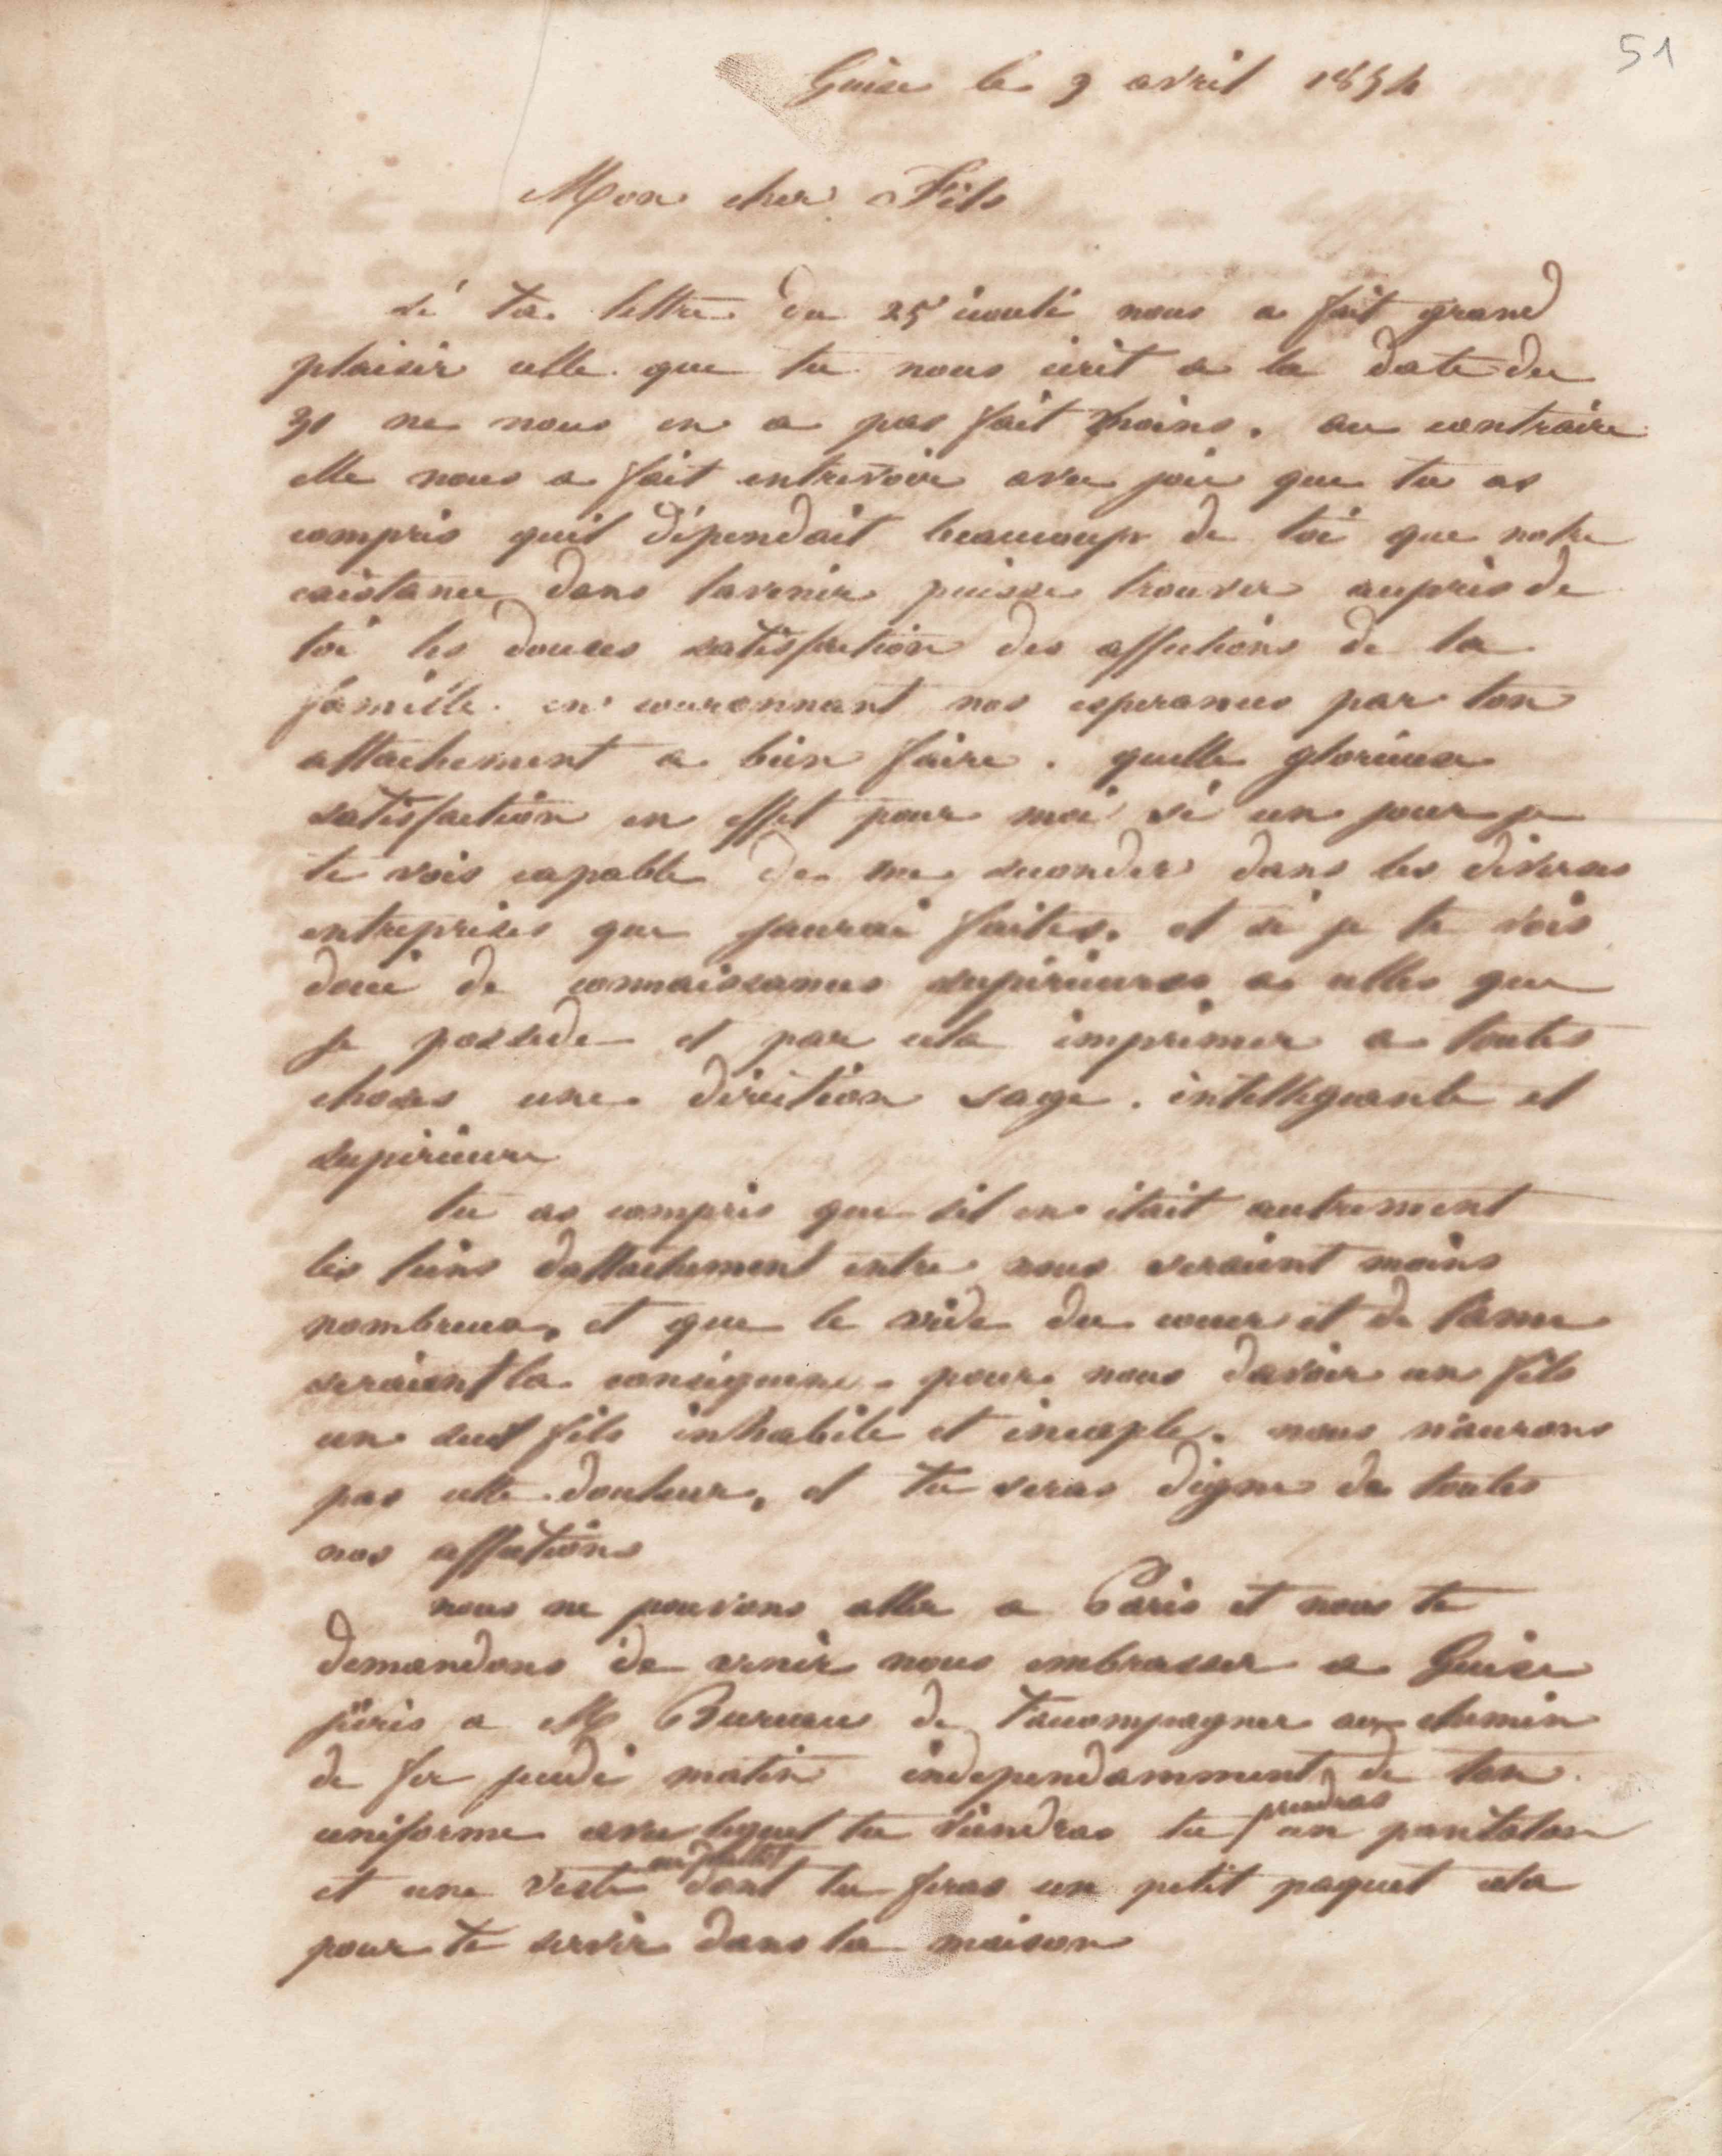 51
Guise le 9 avril 1854
Mon cher Fils
si ta lettre du 25 écoulé nous a fait grand
plaisir celle que tu nous écrit a la date du
31 ne nous en a pas fait moins. au contraire
elle nous a fait entrevoir avec joie que tu as
compris quil dépendait beaucoup de toi que notre
existance dans lavenir puisse trouver auprès de
toi les douces satisfaction des affections de la
famille en couronnant nos esperances par ton
attachement a bien faire. quelle glorieuse
satisfaction en effet pour moi si un jour je
te vois capable de me seconder dans les diverses
entreprises que jaurai faites. et si je te vois
doué de connaissances supérieures a celles que
je possede et par cela imprimer a toutes
choses une direction sage. intellegeante et
supérieure
tu as compris que sil en était autrement
les liens dattachement entre nous seraient moins
nombreux, et que le vide du coeur et de lame
seraient la conséquence pour nous davoir un fils
un seul fils inhabile et incaple. nous n'aurons
pas cette douleur, et tu seras digne de toutes
nos affections
nous ne pouvons aller a Paris et nous te
demandons de venir nous embrasser a Guise
jécris a M Bureau de t'accompagner au chemin
de fer jeudi matin independamment de ton
uniforme avec lequel tu viendras tu prendras un pantalon
et une veste dont tu feras un petit paquet cela
pour te servir dans la maison